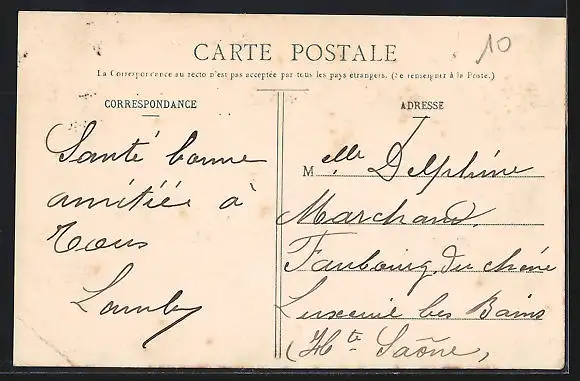 10
CARTE POSTALE
La Correspondance au recto n'est pas acceptée par tous les pays étrangers. (Se renseigner à la Poste.)
CORRESPONDANCE
ADRESSE
Santé bonne
amitiée à
Tous
Melle Delphine
Marchand
Faubourg du chêne
Luxeuil les Bains
(Hte Saône,